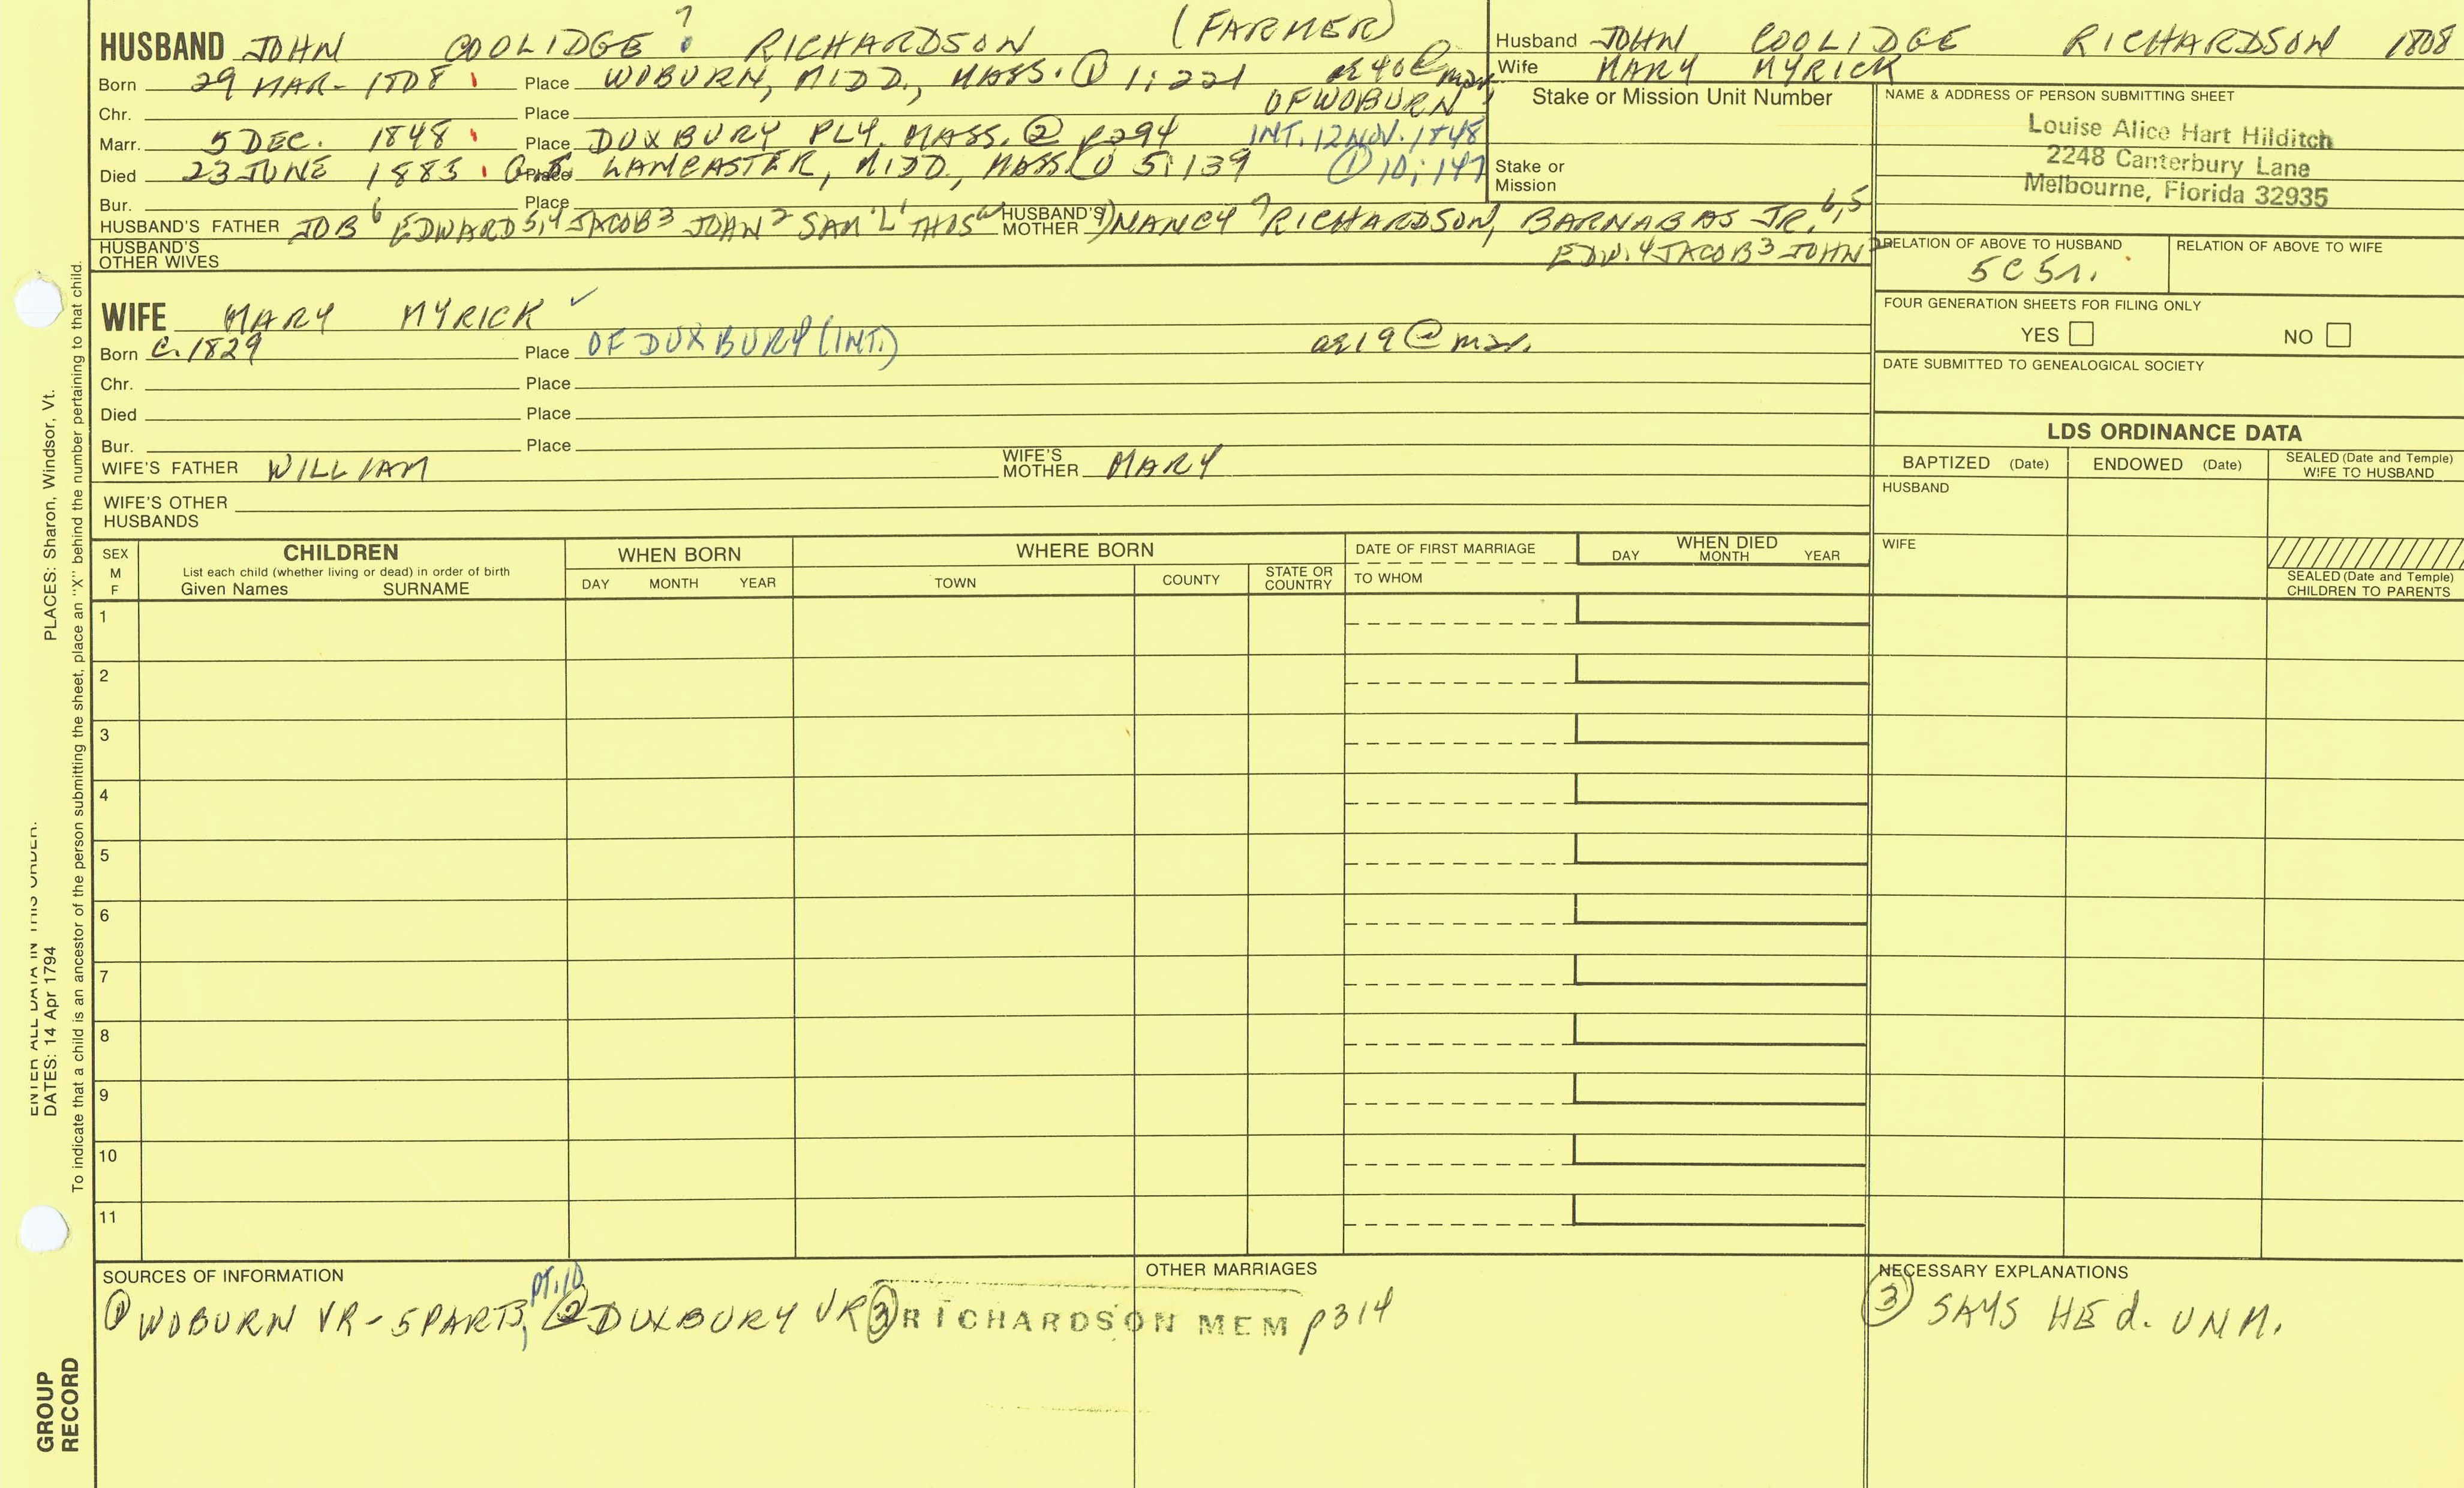 ?
HUSBAND JOHN COOLIDGE ? RICHARDSON (FARMER)
Born 29 MAR. 1808 Place WOBURN, MIDD., MASS. ① 1:221 ae 40 @ mar.
OF WOBURN
Chr. Place
Marr. 5 DEC. 1848 Place DUXBURY PLY. MASS. ② p294 INT. 12 NOV. 1848
Died 23 JUNE 1883 Place LANCASTER, MIDD, MASS. ① 5:139 ① 10:147
Bur. Place
HUSBAND'S FATHER JOB 6 EDWARD 5,4 JACOB 3 JOHN 2 SAM'L 1 THOS HUSBAND'S MOTHER NANCY 7 RICHARDSON, BARNABAS JR. 6,5
EDW. 4 JACOB 3 JOHN 2
HUSBAND'S OTHER WIVES
WIFE MARY MYRICK ✓
Born c. 1829 Place OF DUXBURY (INT.) ae 19 @ mar.
Chr. Place
Died Place
Bur. Place
WIFE'S FATHER WILLIAM WIFE'S MOTHER MARY
WIFE'S OTHER HUSBANDS
Husband JOHN COOLIDGE RICHARDSON 1808
Wife MARY MYRICK
Stake or Mission Unit Number
Stake or
Mission
NAME & ADDRESS OF PERSON SUBMITTING SHEET
Louise Alice Hart Hilditch
2248 Canterbury Lane
Melbourne, Florida 32935
RELATION OF ABOVE TO HUSBAND RELATION OF ABOVE TO WIFE
5C 5r.
FOUR GENERATION SHEETS FOR FILING ONLY
YES NO
DATE SUBMITTED TO GENEALOGICAL SOCIETY
LDS ORDINANCE DATA
BAPTIZED (Date) ENDOWED (Date) SEALED (Date and Temple) WIFE TO HUSBAND
HUSBAND
WIFE
SEALED (Date and Temple)
CHILDREN TO PARENTS
SEX M F CHILDREN WHEN BORN WHERE BORN DATE OF FIRST MARRIAGE WHEN DIED
List each child (whether living or dead) in order of birth
Given Names SURNAME DAY MONTH YEAR TOWN COUNTY STATE OR COUNTRY TO WHOM DAY MONTH YEAR
1
2
3
4
5
6
7
8
9
10
11
SOURCES OF INFORMATION OTHER MARRIAGES NECESSARY EXPLANATIONS
pt. 10
① WOBURN VR - 5 PARTS, ② DUXBURY VR ③ RICHARDSON MEM p314
③ SAYS HE d. UNM.
PLACES: Sharon, Windsor, Vt.
ENTER ALL DATA IN THIS ORDER:
DATES: 14 Apr 1794
To indicate that a child is an ancestor of the person submitting the sheet, place an "X" behind the number pertaining to that child.
GROUP
RECORD